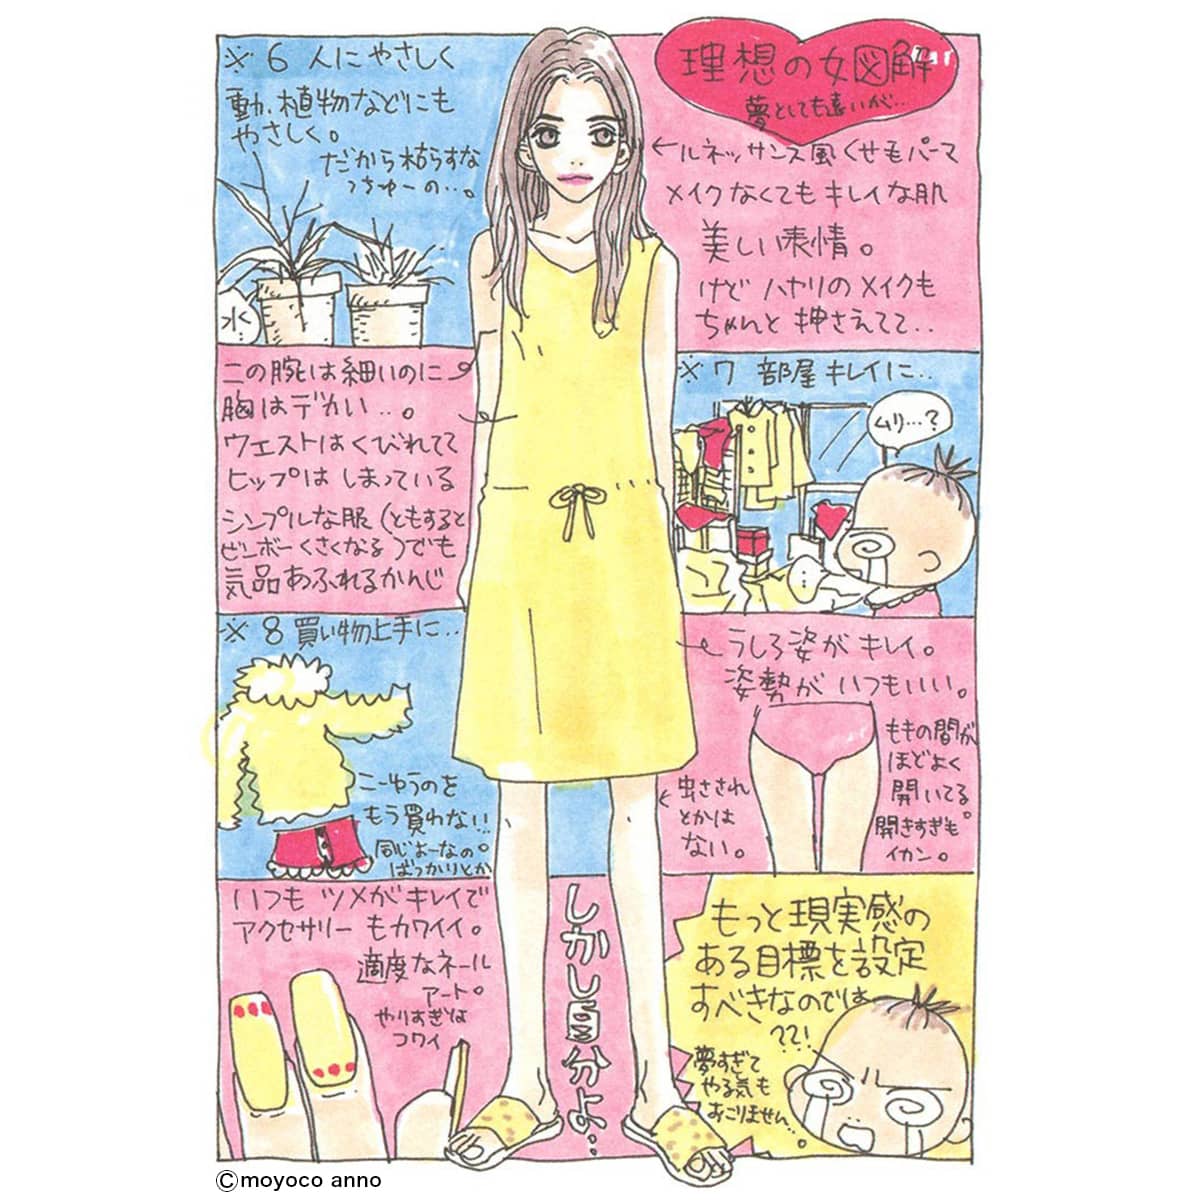 理想の女図解
夢としても遠いが…
←ルネッサンス風くせ毛パーマ
メイクなくてもキレイな肌
美しい表情。
けど ハヤリのメイクも
ちゃんと押さえてて‥
※6 人にやさしく
動、植物などにも
やさしく。
だから枯らすな
っちゅーの…。
水
この腕は細いのに
胸はデカい‥。
ウエストはくびれてて
ヒップは しまっている
シンプルな服(ともすると
ビンボーくさくなる)でも
気品あふれるかんじ
※7 部屋キレイに‥
ムリ…?
※8 買い物上手に‥
こーゆうのを
もう買わない!!
同じよーなの。
ばっかりとか
うしろ姿がキレイ。
姿勢がいつもいい。
ももの間が
ほどよく
開いてる。
開きすぎも
イカン。
虫さされ
とかは
ない。
いつも ツメがキレイで
アクセサリーもカワイイ。
適度なネール
アート。
やりすぎは
コワイ
しかし自分よ‥
もっと現実感の
ある目標を設定
すべきなのでは
??!
夢すぎて
やる気も
おこりません‥。
©moyoco anno